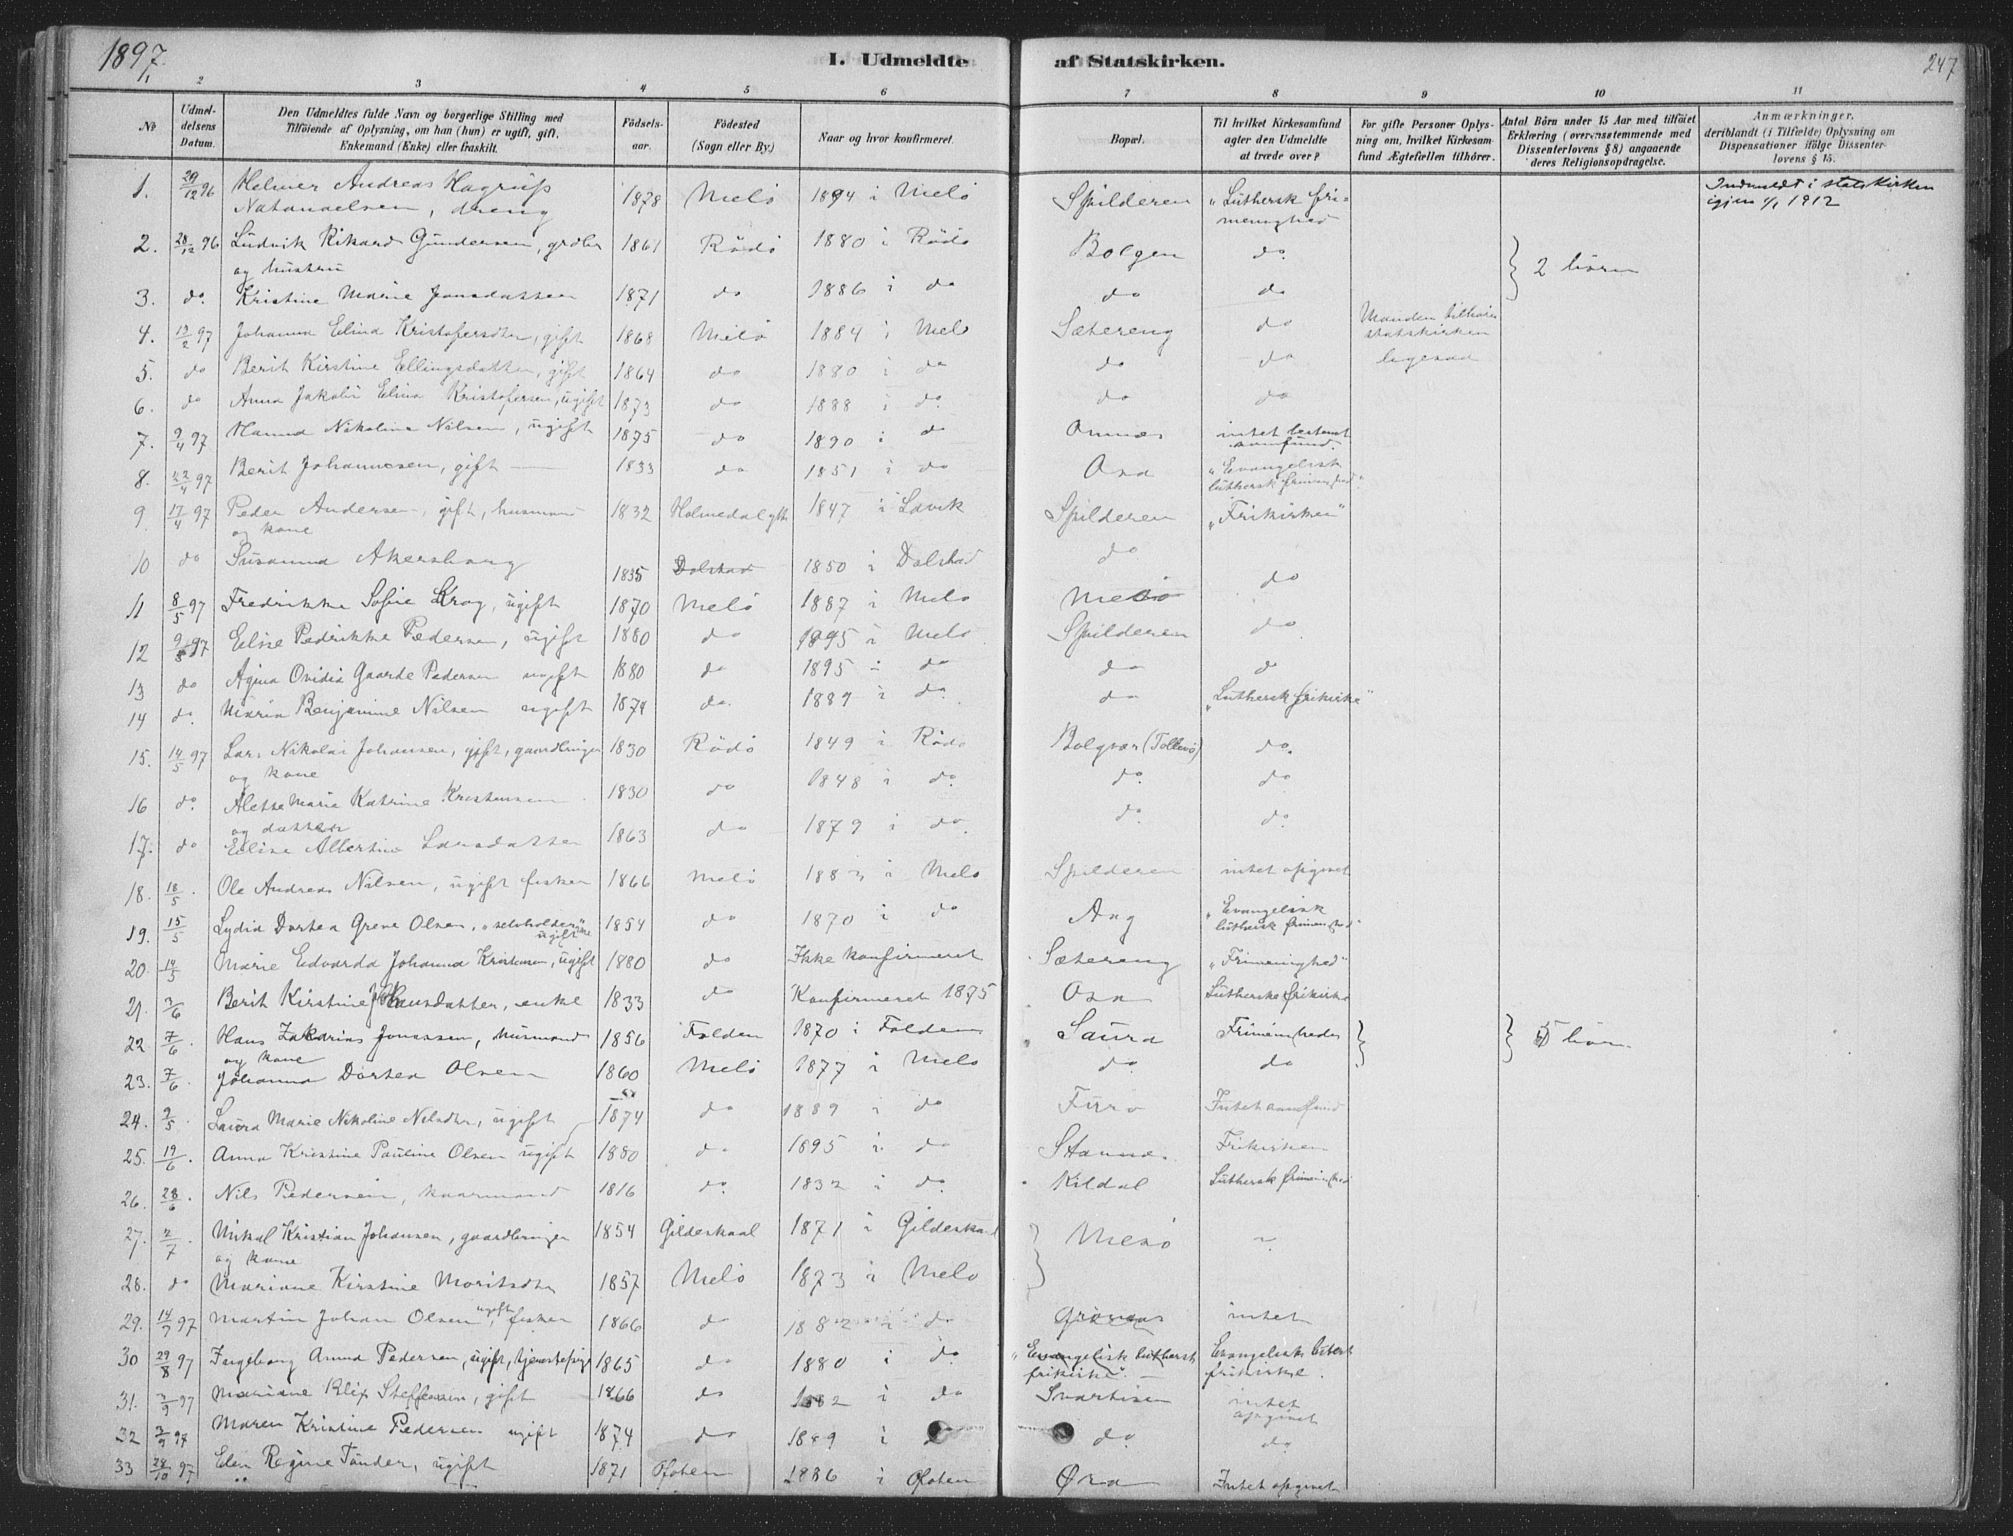 1897.
I. Udmeldte af Statskirken.
247
1 2 3 4 5 6 7 8 9 10 11
No
Udmel-
delsens
Datum.
Den Udmeldtes fulde Navn og borgerlige Stilling med
Tilföiende af Oplysning, om han (hun) er ugift, gift,
Enkemand (Enke) eller fraskilt.
Födsels-
aar.
Födested
(Sogn eller By).
Naar og hvor konfirmeret.
Bopæl.
Til hvilket Kirkesamfund
agter den Udmeldte
at træde over?
For gifte Personer Oplys-
ning om, hvilket Kirkesam-
fund Ægtefællen tilhörer.
Antal Börn under 15 Aar med tilföiet
Erklæring (overensstemmende med
Dissenterlovens § 8) angaaende
deres Religionsopdragelse.
Anmærkninger,
deriblandt (i Tilfælde) Oplysning om
Dispensationer ifölge Dissenter-
lovens § 15.
1. 29/12 96 Helmer Andreas Hagrup Natanaelsen, dreng 1878 Melö 1894 i Melö Spilderen "Luthersk frimenighed Indmeldt i statskirken igjen 1912
2. 28/12 96 Ludvik Rikard Gundersen, og hustru 1861 Rödö 1880 i Rödö Bolgen do. } 2 börn
3. do. Kristine Marie Jonsdatter 1871 do 1886 i do do do
4. 12/2 97 Johanna Elina Kristofersdtr, gift 1868 Melö 1884 i Melö Sætereng do Manden tilhörer statskirken
5. do Berit Kirstine Ellingsdatter, gift 1864 do 1880 i do do do ligesaa
6. do Anna Jakobi Elina Kristofersen, ugift 1873 do 1888 i do. do do
7. 9/4 97 Hanna Nikoline Nilsen, ugift 1875 do 1890 i do intet bestemt samfund.
8. 22/4 97 Berit Johannesen, gift 1833 do 1851 i do Osa "Evangelisk luthersk frimenighed"
9. 17/4 97 Peder Andersen, gift, husmand og kone 1832 Holmedal 1847 i Lavik Spilderen "Frikirken"
10 do Susanna Akersborg 1835 Dolstad 1850 i Dolstad do do
11 8/5 97 Fredrikke Sofie Krog, ugift 1870 Melö 1887 i Melö Melö
12 9/5 97 Elise Pedrikke Pedersen, ugift 1880 do 1895 i Melö Spilderen do.
13 do Agina Ovidia Gaarde Pedersen ugift 1880 do 1895 i do do do
14 do. Maria Benjamine Nilsen ugift 1874 do. 1889 i do. do "Luthersk frikirke"
15. 14/5 97 Lars Nikolai Johansen, gift, gaardbruger og kone 1830 Rödö 1849 i Rödö Bolgvær do.
16 do. Aletta Maria Katrine Kristensen og datter 1830 do 1848 i do. do. do
17. do Elise Albertine Larsdatter 1863 do 1879 i do. do. do.
18. 18/5. Ole Andreas Nilsen, ugift fisker 1866 Melö 1883 i Melö Spilderen intet opgivet
19. 15/5 Lydia Dortea Greve Olsen, "selvholderske" ugift 1854 do 1870 i do Aag "Evangelisk luthersk frimenighed"
20. 14/5 Marie Edvarda Johanna Kristensen, ugift 1880 do Ikke konfirmeret Sætereng "Frimenighed"
21. 3/6 Berit Kirstine Johansdatter, enke 1833 do Konfirmeret 1875 Osa Lutherske frikirke
22. 7/6 Hans Zakarias Jonassen, husmand og kone 1856 Folden 1870 i Folden Saura Frimenighedes } } 5 börn
23. 7/6. Johanna Dortea Olsen 1860 Melö 1877 i Melö do. do
24. 9/5. Laura Marie Nikoline Nilsdtr, ugift 1874 do 1889 i do Furö Intet samfund
25. 19/6. Anna Kristine Pauline Olsen ugift 1880 do 1895 i do Stavnes. Frikirken
26. 28/6. Nils Pedersen, kaarmand 1816 do. 1832 i do. Kildal Luthersk frimenighed
27. 2/7 Mikal Kristian Johansen, gaardbruger og kone 1854 Gildeskaal 1871 i Gildeskaal } Melö
28. do Mariane Kirstine Moritsdtr 1857 Melö 1873 i Melö
29. 14/7 97 Martin Johan Olsen ugift, fisker 1866 do 1882 i do Grönnes intet
30 29/8 97 Ingeborg Anna Pedersen, ugift, tjenestepige 1865 do 1880 i do. "Evangelisk luthersk frikirke" Evangelisk luthersk frikirke.
31. 3/9 97 Mariane Klip Steffensen, gift 1866 do 1882 i do Svartisen intet opgivet
32 3/9 97 Maren Kristine Pedersen ugift 1874 do 1889 i do. do.
33 28/10 97 Elen Regine Tönder, ugift 1871 Ofoten 1886 i Ofoten Øra Intet opgivet